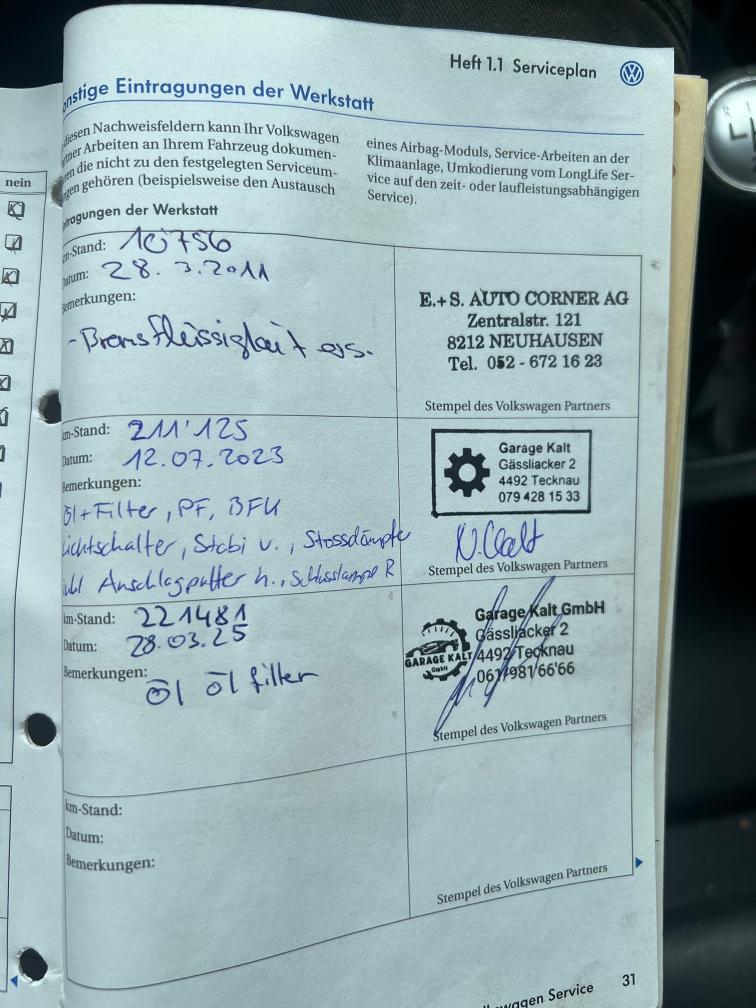 Heft 1.1 Serviceplan
nstige Eintragungen der Werkstatt
diesen Nachweisfeldern kann Ihr Volkswagen
tner Arbeiten an Ihrem Fahrzeug dokumen-
en die nicht zu den festgelegten Serviceum-
gen gehören (beispielsweise den Austausch
eines Airbag-Moduls, Service-Arbeiten an der
Klimaanlage, Umkodierung vom LongLife Ser-
vice auf den zeit- oder laufleistungsabhängigen
Service).
nein
ntragungen der Werkstatt
m-Stand: 10756
atum: 28. 3.2011
emerkungen:
- Bremsflüssigkeit ers.
E.+S. AUTO CORNER AG
Zentralstr. 121
8212 NEUHAUSEN
Tel. 052 - 672 16 23
Stempel des Volkswagen Partners
m-Stand: 211'125
Datum: 12.07.2023
Bemerkungen:
Öl+Filter, PF, BFK
ichtschalter, Stabi v., Stossdämpfe
Anschlagpuffer h., Schlusslampe R
Garage Kalt
Gässliacker 2
4492 Tecknau
079 428 15 33
N. Kalt
Stempel des Volkswagen Partners
km-Stand: 221481
Datum: 28.03.25
Bemerkungen:
Öl Ölfilter
Garage Kalt GmbH
Gässliacker 2
4492 Tecknau
061/981/66'66
GARAGE KALT
GmbH
Stempel des Volkswagen Partners
km-Stand:
Datum:
Bemerkungen:
Stempel des Volkswagen Partners
wagen Service 31